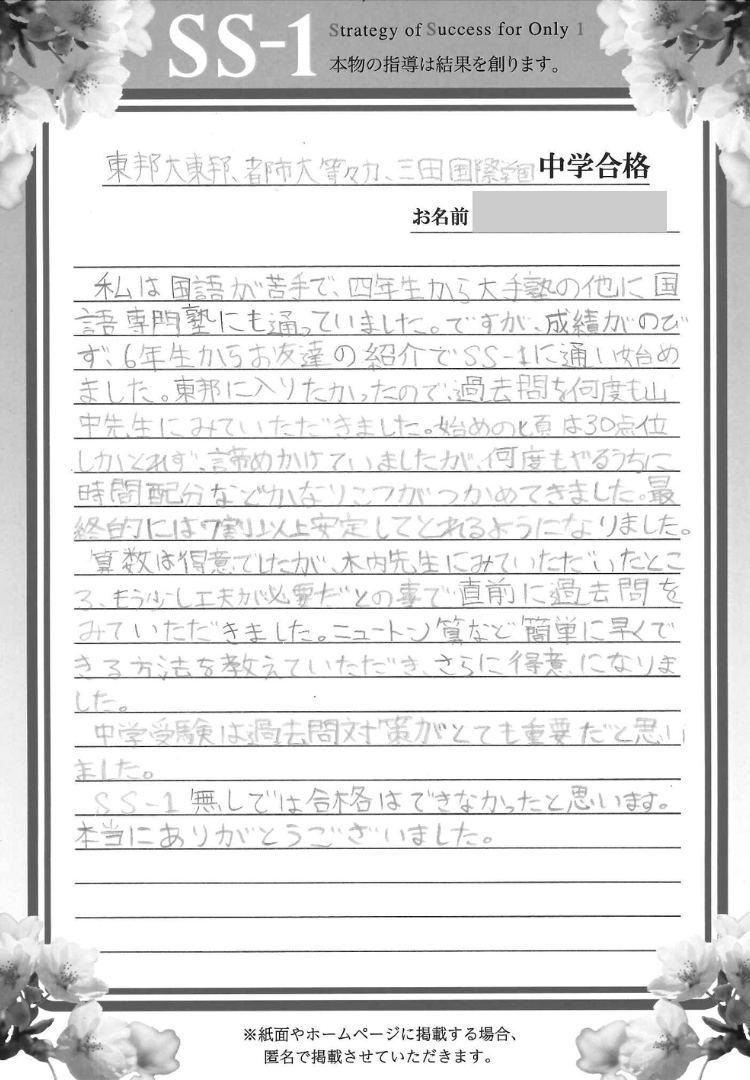 SS-1
Strategy of Success for Only 1
本物の指導は結果を創ります。
東邦大東邦、都市大等々力、三田国際学園 中学合格
お名前
私は国語が苦手で、四年生から大手塾の他に国
語専門塾にも通っていました。ですが、成績がのび
ず、6年生からお友達の紹介でSS-1に通い始め
ました。東邦に入りたかったので、過去問を何度も山
中先生にみていただきました。始めの頃は30点位
しかとれず、諦めかけていましたが、何度もやるうちに
時間配分などかなりコツがつかめてきました。最
終的には7割以上安定してとれるようになりました。
算数は得意でしたが、木内先生にみていただいたとこ
ろ、もう少し工夫が必要だとの事で直前に過去問を
みていただきました。ニュートン算など簡単に早くで
きる方法を教えていただき、さらに得意になりま
した。
中学受験は過去問対策がとても重要だと思い
ました。
SS-1無しでは合格はできなかったと思います。
本当にありがとうございました。
※紙面やホームページに掲載する場合、
匿名で掲載させていただきます。